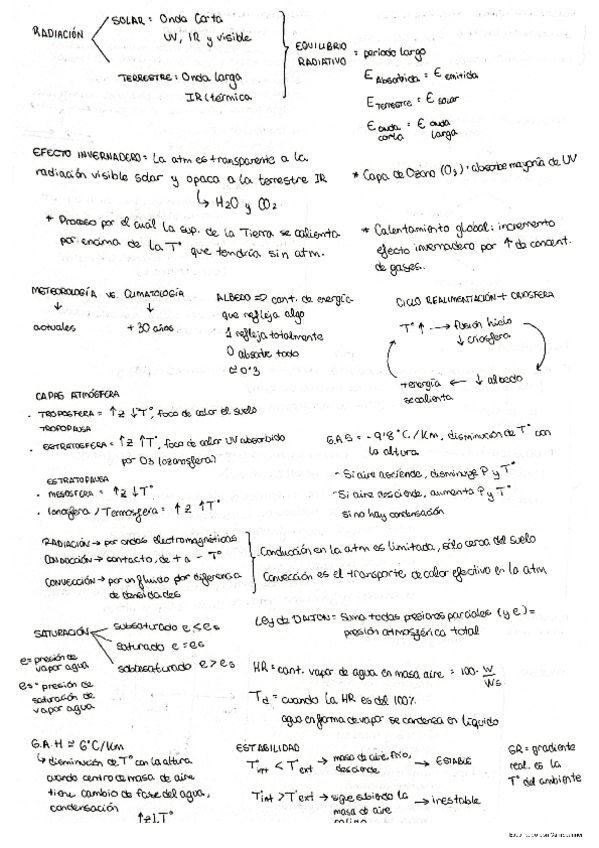 RADIACIÓN
SOLAR: Onda Corta
UV, IR y visible
TERRESTRE: Onda larga
IR (térmica
EQUILIBRIO
RADIATIVO = periodo largo
E Absorbida = E emitida
E Terrestre = E solar
E onda corta = E onda larga
EFECTO INVERNADERO: La atm es transparente a la
radiación visible solar y opaca a la terrestre IR
↳ H2O y CO2
* Proceso por el cuál la sup. de la Tierra se calienta
por encima de la Tª que tendría sin atm.
* Capa de Ozono (O3): absorbe mayoría de UV
* Calentamiento global: incremento
efecto invernadero por ↑ de concent.
de gases.
METEOROLOGÍA vs. CLIMATOLOGÍA
↓ ↓
actuales + 30 años
ALBEDO => cant. de energía
que refleja algo
1 refleja totalmente
0 absorbe todo
≅ 0'3
CICLO REALIMENTACIÓN + CRIOSFERA
Tª ↑ → fusión hielo
↓ criosfera
↓ albedo
+ energía ←
se calienta
CAPAS ATMÓSFERA
· TROPOSFERA = ↑z ↓Tª, foco de calor el suelo
TROPOPAUSA
· ESTRATOSFERA = ↑z ↑Tª, foco de calor UV absorbido
por O3 (ozonosfera)
ESTRATOPAUSA
· MESOSFERA = ↑z ↓Tª
· Ionosfera / Termosfera = ↑z ↑Tª
G.A.S = -9'8 °C/Km, disminución de Tª con
la altura
- Si aire asciende, disminuye P y Tª
- Si aire desciende, aumenta P y Tª
si no hay condensación
RADIACIÓN → por ondas electromagnéticas
CONDUCCIÓN → contacto, de + a - Tª
CONVECCIÓN → por un fluido por diferencia
de densidades
Conducción en la atm es limitada, sólo cerca del suelo
Convección es el transporte de calor efectivo en la atm
SATURACIÓN
subsaturado e < es
saturado e = es
sobresaturado e > es
e = presión de
vapor agua
es = presión de
saturación de
vapor agua
Ley de DALTON = Suma todas presiones parciales (y e) =
presión atmosférica total
HR = cant. vapor de agua en masa aire = 100 · w/ws
Td = cuando la HR es del 100%
agua en forma de vapor se condensa en líquido
G.A.H ≅ 6°C/Km
↳ disminución de Tª con la altura
cuando centro de masa de aire
tiene cambio de fase del agua,
condensación
↑z ↓Tª
ESTABILIDAD
Tint < Text → masa de aire frío, desciende → ESTABLE
Tint > Text → sigue subiendo la masa de aire → inestable
GR = gradiente
real. es la
Tª del ambiente